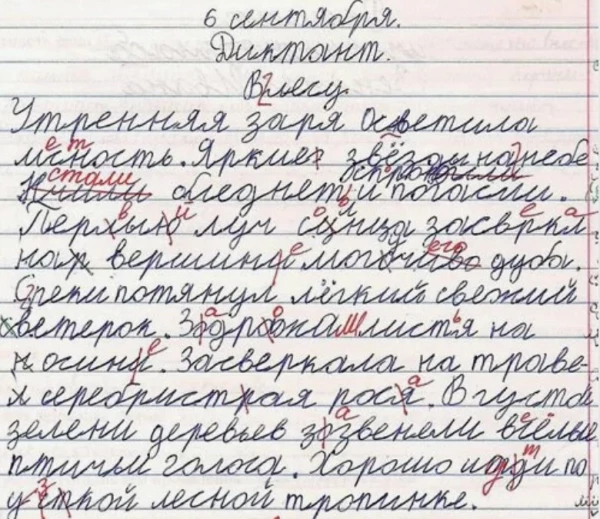 6 сентября.
Диктант.
В лесу.
Утренняя заря осветила
месность. Яркие звёзды на небе
стали бледнеть и погасли.
Первый луч солнца засверкал
на вершине могучего дуба.
С реки потянул лёгкий свежий
ветерок. Задрожал листья на
осине. Засверкала на траве
серебристая роса. В густой
зелени деревьев зазвенели весёлые
птичьи голоса. Хорошо идти по
узкой лесной тропинке.